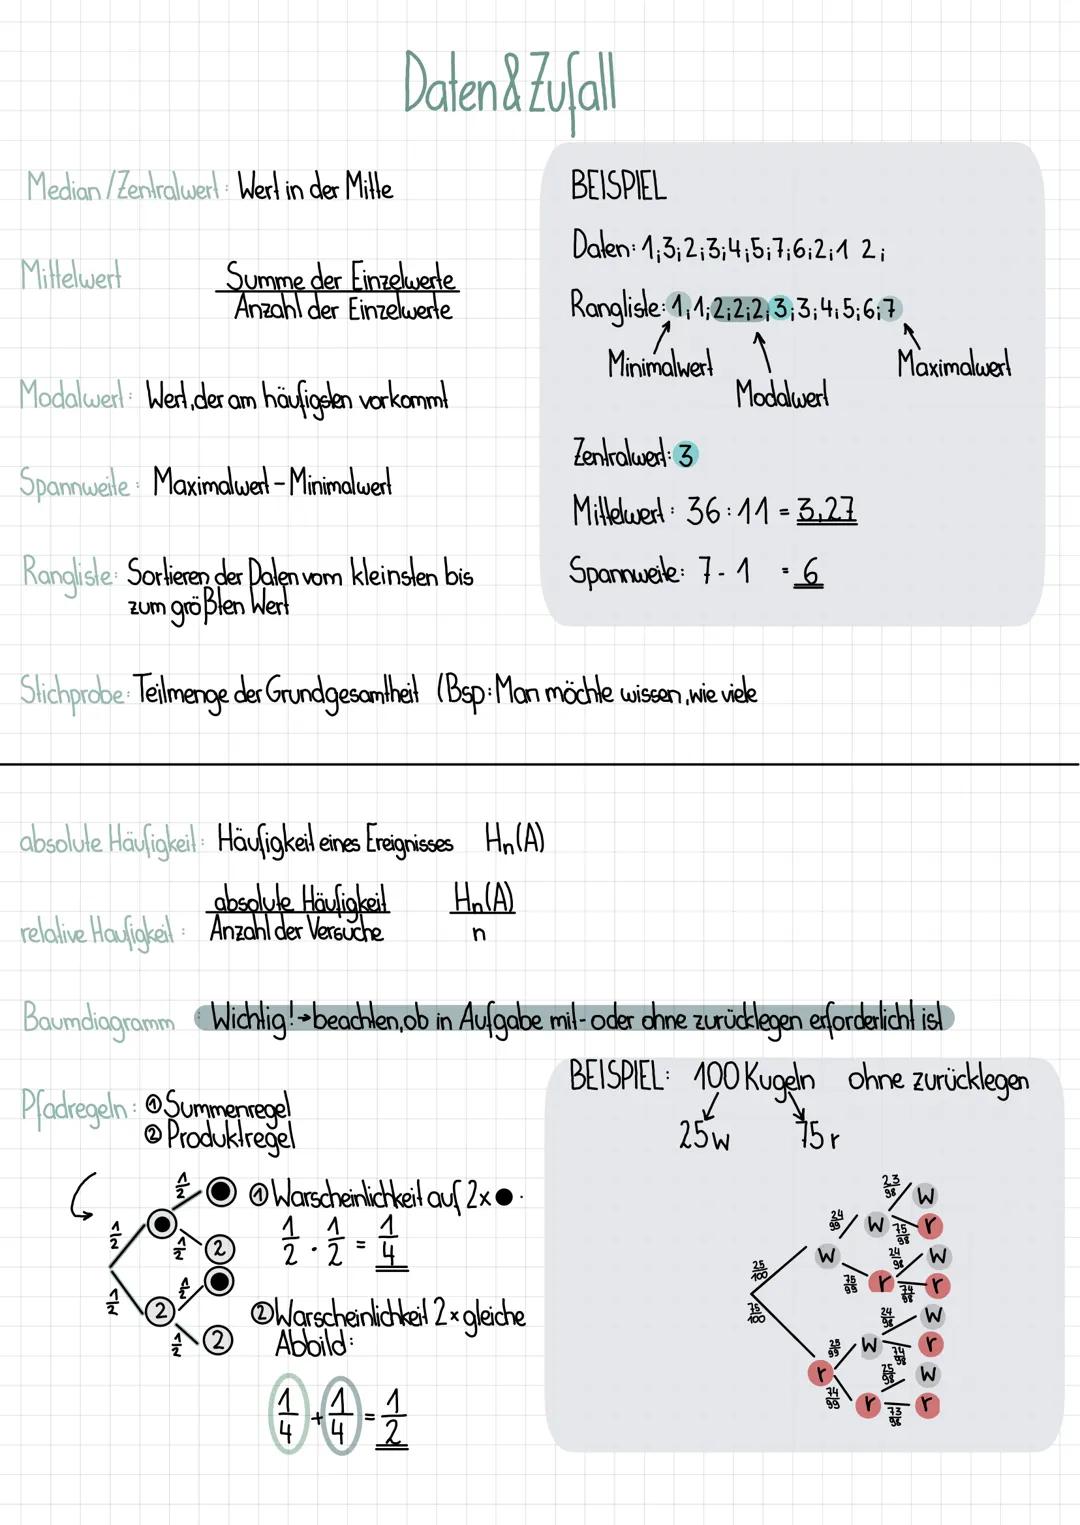 Daten & Zufall
Median / Zentralwert: Wert in der Mitte
Mittelwert
Summe der Einzelwerte
Anzahl der Einzelwerte
Modalwert: Wert, der am häufigsten vorkommt
Spannweite: Maximalwert - Minimalwert
Rangliste: Sortieren der Daten vom kleinsten bis
zum größten Wert
BEISPIEL
Daten: 1;3;2;3;4;5;7;6;2;1 2;
Rangliste: 1;1;2;2;2;3;3;4;5;6;7
Minimalwert
Modalwert
Maximalwert
Zentralwert: 3
Mittelwert: 36:11 = 3,27
Spannweite: 7-1 = 6
Stichprobe: Teilmenge der Grundgesamtheit (Bsp: Man möchte wissen, wie viele
absolute Häufigkeit: Häufigkeit eines Ereignisses Hn(A)
relative Häufigkeit:
absolute Häufigkeit
Anzahl der Versuche
Hn(A)
n
Baumdiagramm: Wichtig! → beachten, ob in Aufgabe mit- oder ohne zurücklegen erforderlicht ist
Pfadregeln: ① Summenregel
② Produktregel
1/2
1/2
1/2
2
1/2
1/2
2
1/2
1/2
2
① Warscheinlichkeit auf 2x ●
1/2 · 1/2 = 1/4
② Warscheinlichkeit 2x gleiche
Abbild:
1/4 + 1/4 = 1/2
BEISPIEL: 100 Kugeln ohne zurücklegen
25w 75r
23/98 w
24/99 w 75/98 r
25/100 w 24/98 w
75/99 r 74/98 r
75/100 24/98 w
25/99 w 74/98 r
r 25/98 w
74/99 r 73/98 r